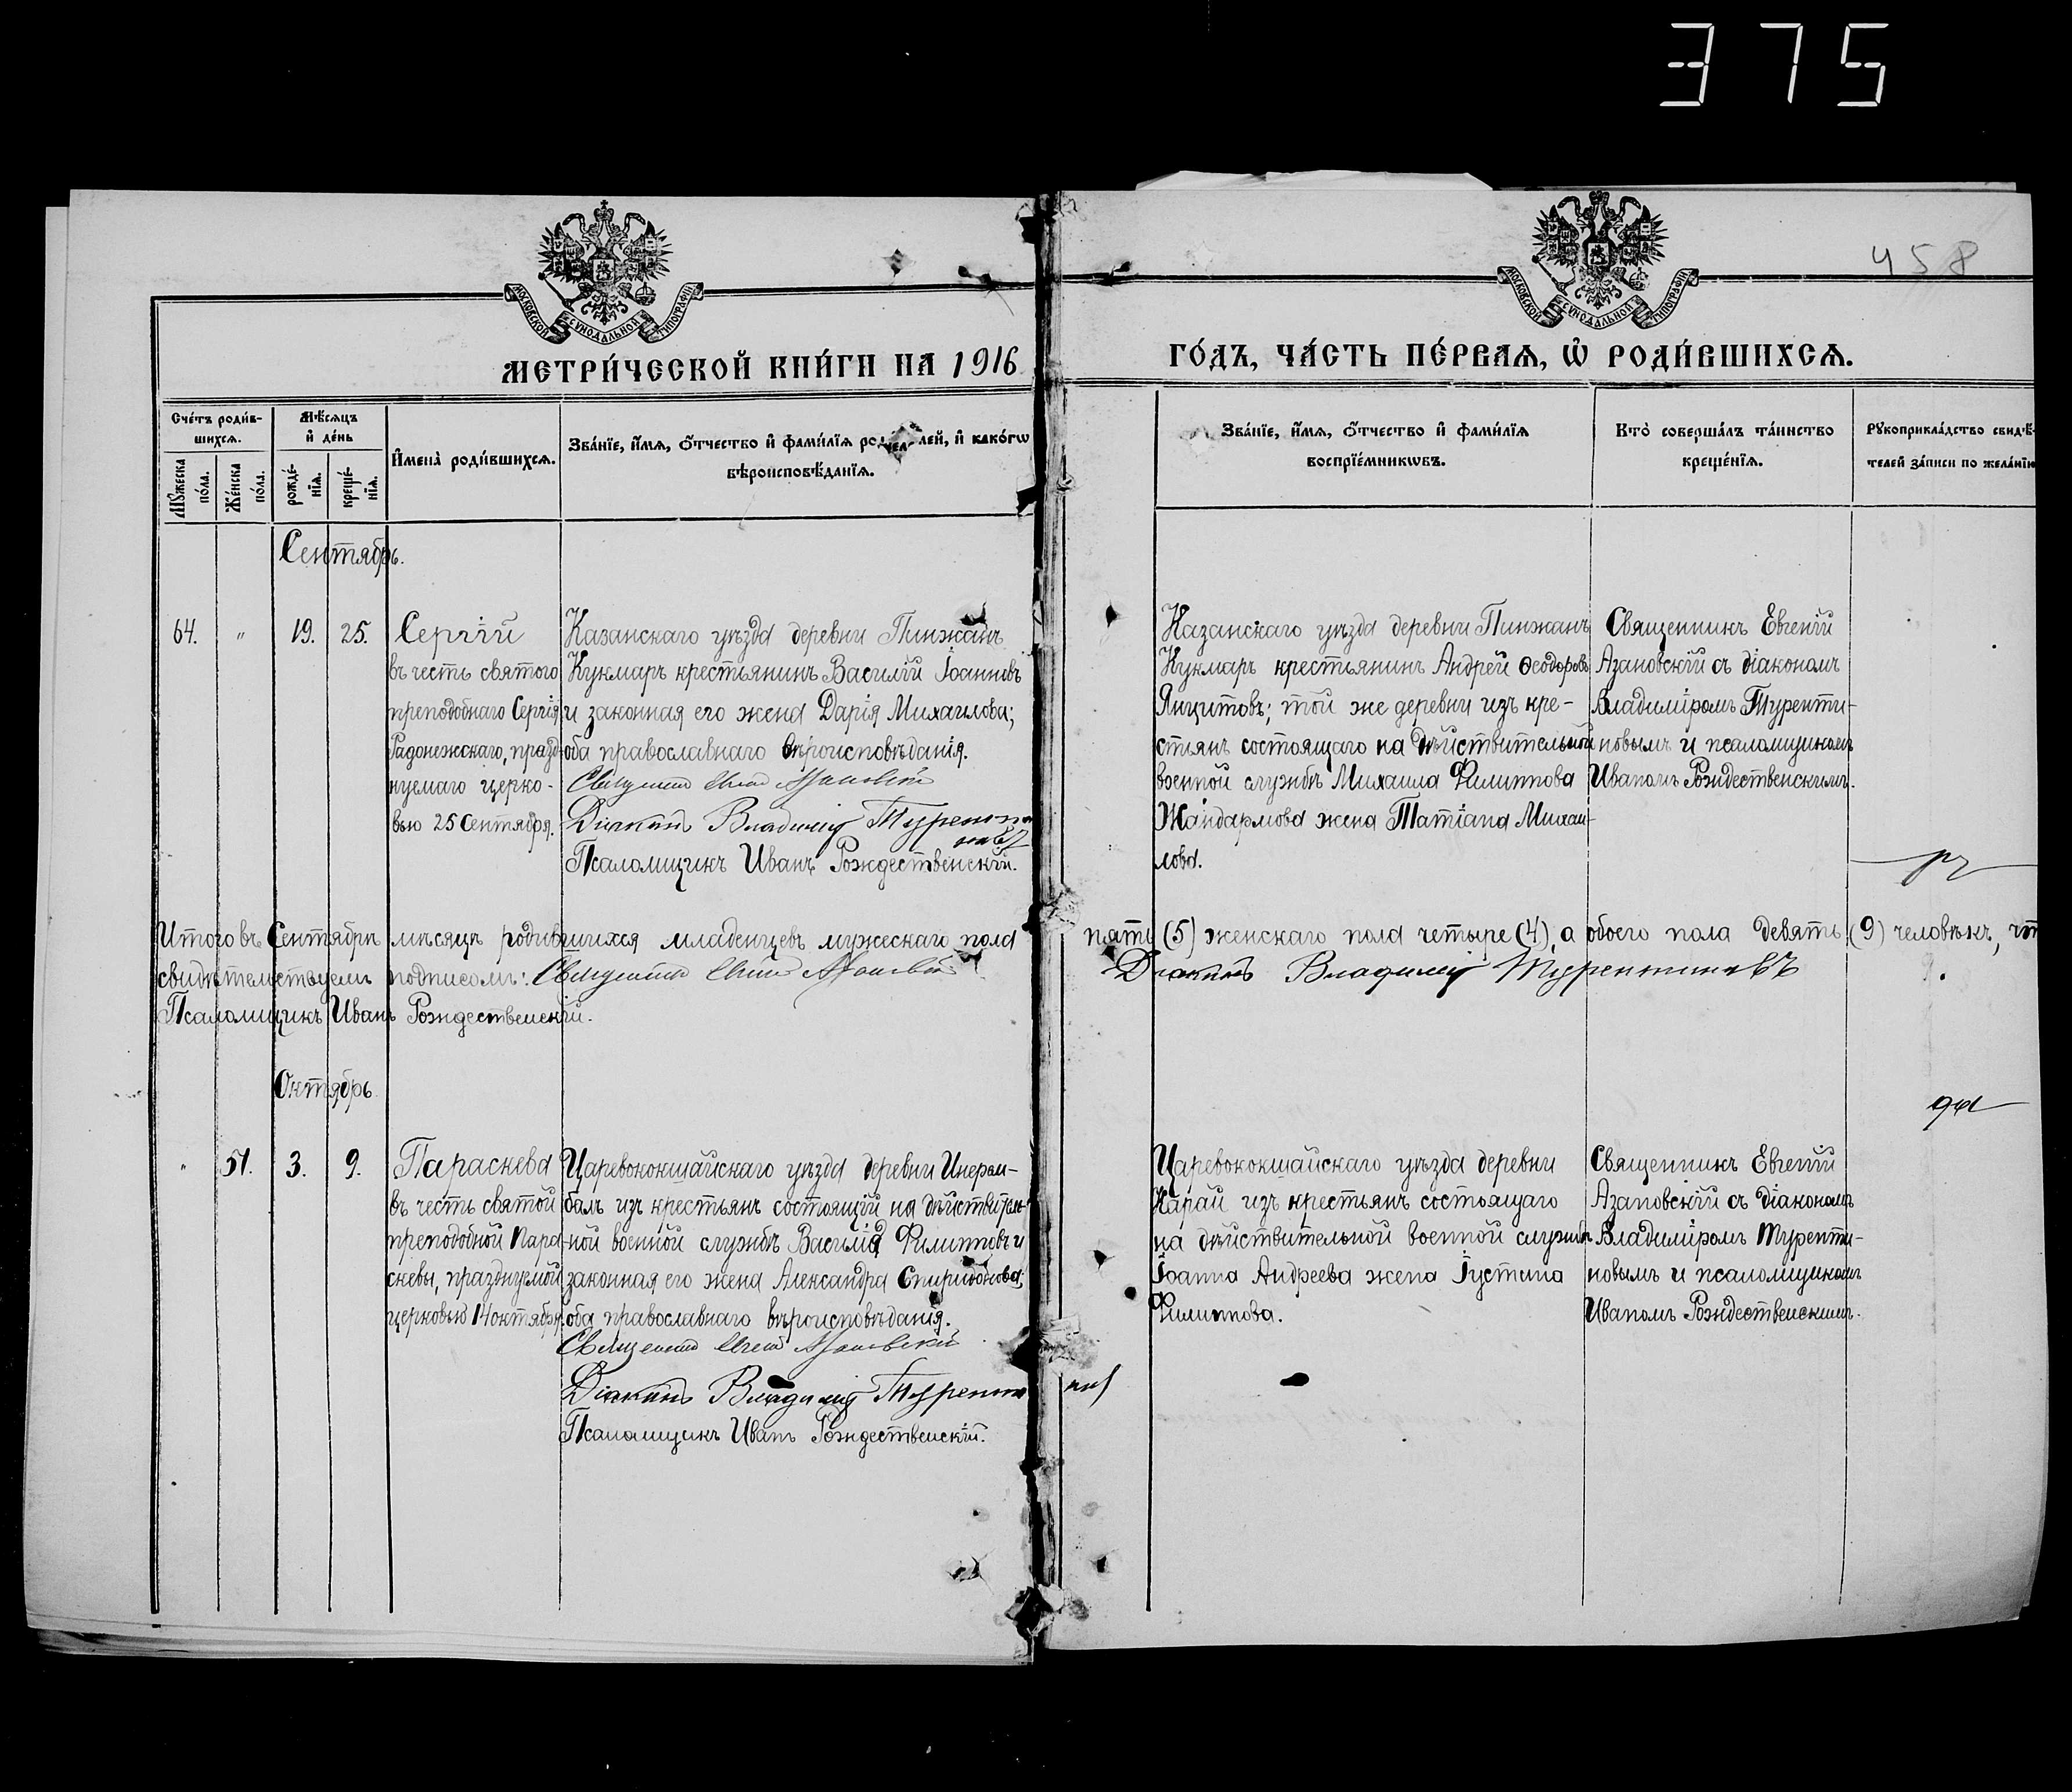 375
458
МОСКОВСКОЙ СѴНОДАЛЬНОЙ ТИПОГРАФІИ
МОСКОВСКОЙ СѴНОДАЛЬНОЙ ТИПОГРАФІИ
МЕТРИ́ЧЕСКОЙ КНИ́ГИ НА 1916
ГО́ДЪ, ЧА́СТЬ ПЕ́РВАѦ, Ѽ РОДИ́ВШИХСѦ.
Сче́тъ роди́в-
шихсѧ.
Мѣ́сѧцъ
и҆ де́нь
И҆мена̀ роди́вшихсѧ.
Зва́нїе, и҆́мѧ, ѻ҆́тчество и҆ фами́лїѧ роди́телей, и҆ како́гѡ
вѣроисповѣ́данїѧ.
Мꙋ́жеска
по́ла.
Же́нска
по́ла.
рожде́-
нїѧ.
креще́-
нїѧ.
Зва́нїе, и҆́мѧ, ѻ҆́тчество и҆ фами́лїѧ
воспрїе́мникѡвъ.
Кто̀ соверша́лъ та́инство
креще́нїѧ.
Рꙋкоприкла́дство свидѣ́-
телей за́писи по жела́нїю
Сентябрь.
64. " 19. 25. Сергій
въ честь святого
преподобнаго Сергія
Радонежскаго, празд-
нуемаго церко-
вью 25 Сентября.
Казанскаго уѣзда деревни Пинжанъ
Кукмаръ крестьянинъ Василій Іоанновъ
и законная его жена Дарія Михаилова;
оба православнаго вѣроисповѣданія.
Священникъ Евгеній Азановскій
Діаконъ Владиміръ Турентиновъ
Псаломщикъ Иванъ Рождественскій.
Казанскаго уѣзда деревни Пинжанъ
Кукмаръ крестьянинъ Андрей Ѳеодоровъ
Янцитовъ; той же деревни изъ кре-
стьянъ состоящаго на дѣйствительной
военной службѣ Михаила Филиппова
Жандармова жена Татіана Михаи-
лова.
Священникъ Евгеній
Азановскій съ діакономъ
Владиміромъ Туренти-
новымъ и псаломщикомъ
Иваномъ Рождественскимъ.
Итого въ Сентябрѣ мѣсяцѣ родившихся младенцевъ мужескаго пола пять (5) женскаго пола четыре (4), а обоего пола девять (9) человѣкъ, что
свидѣтельствуемъ подписомъ: Священникъ Евгеній Азановскій Діаконъ Владиміръ Турентиновъ
Псаломщикъ Иванъ Рождественскій.
Октябрь
" 51. 3. 9. Параскева
въ честь святой
преподобной Пара-
скевы, празднуемой
церковью 14 октября.
Царевококшайскаго уѣзда деревни Инерым-
балъ изъ крестьянъ состоящій на дѣйствитель-
ной военной службѣ Василій Филипповъ и
законная его жена Александра Спиридонова;
оба православнаго вѣроисповѣданія.
Священникъ Евгеній Азановскій
Діаконъ Владиміръ Турентиновъ
Псаломщикъ Иванъ Рождественскій.
Царевококшайскаго уѣзда деревни
Карай изъ крестьянъ состоящаго
на дѣйствительной военной службѣ
Іоанна Андреева жена Іустина
Филиппова.
Священникъ Евгеній
Азановскій съ діакономъ
Владиміромъ Туренти-
новымъ и псаломщикомъ
Иваномъ Рождественскимъ.